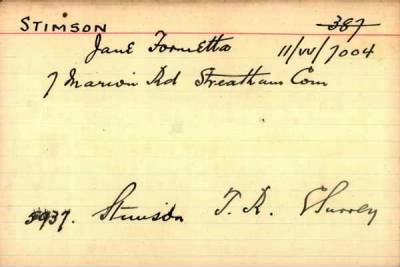 STIMSON 387
Jane Fornetta 11/W/7004
7 Marion Rd Streatham Com
5937. Stimson T. R. E Surrey